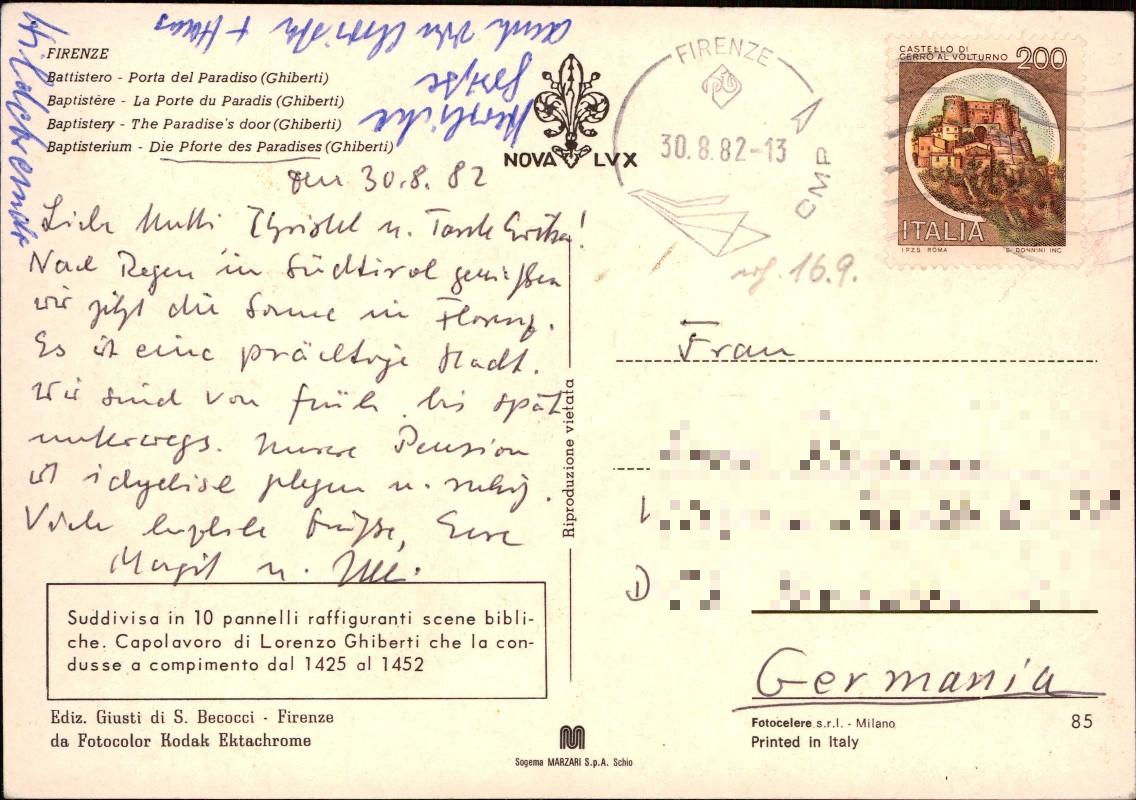 FIRENZE
Battistero - Porta del Paradiso (Ghiberti)
Baptistère - La Porte du Paradis (Ghiberti)
Baptistery - The Paradise's door (Ghiberti)
Baptisterium - Die Pforte des Paradises (Ghiberti)
NOVA LVX
den 30.8.82
Liebe Mutti Christel u. Tante
Nach Regen in Südtirol genießen
wir jetzt die Sonne in Florenz.
Es ist eine prächtige Stadt.
Wir sind von früh bis spät
unterwegs. Unsere Pension
ist idyllisch gelegen u. ruhig.
Viele herzliche Grüße, Eure
Margit u. Ulli.
Herzliche
Grüße
auch von + Hans
Suddivisa in 10 pannelli raffiguranti scene bibli-
che. Capolavoro di Lorenzo Ghiberti che la con-
dusse a compimento dal 1425 al 1452
Ediz. Giusti di S. Becocci - Firenze
da Fotocolor Kodak Ektachrome
Riproduzione vietata
Sogema MARZARI S.p.A. Schio
FIRENZE
30.8.82-13
CMP
CASTELLO DI
CERRO AL VOLTURNO
200
ITALIA
I.P.Z.S. ROMA
E. DONNINI INC.
16.9.
Frau
D
Germania
Fotocelere s.r.l. - Milano
Printed in Italy
85